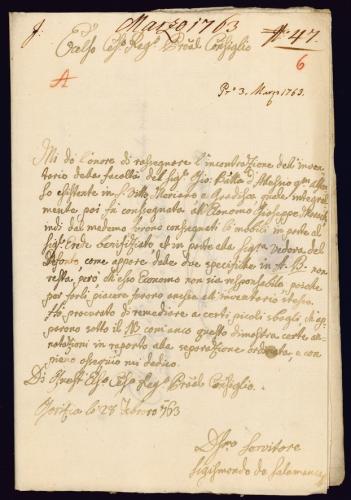 J. Marzo 1763 N: 47.
Eccelso Ces: Reg: Consiglio
A
6
Pr: 3. Marzo 1763.
Mi dò l'onore di rassegnare l'incontrazione dell'inven
tario della facoltà del Sig: Gio: Batta d'Alesio qm
so esistente in S. Vitto, Moriano e Gradisca quale integral
mente poi fu consegnata all'Economo Giuseppe
indi dal medemo furono consegnati li mobili in parte al
Sig: Erede benifiziato et in parte alla Sigra Vedova del
Defonto, come appare dalle due specifiche in A. B. non
resta, però, che esso Economo non sia responsabile poiche
per farli piacere furono anessi all'inventario stesso.
Hò procurato di remediare a certi piccoli sbagli ch'ap-
parono sotto il N: come anco questo dimostra certe an-
notazioni in reporto alla separazione ordinata, e con
pieno ossequio mi dedico.
Di Quest' Ecc: Ces: Reg: Consiglio.
Gorizia li 28 Febraro 763
Servitore
Sigismondo de Salamanca